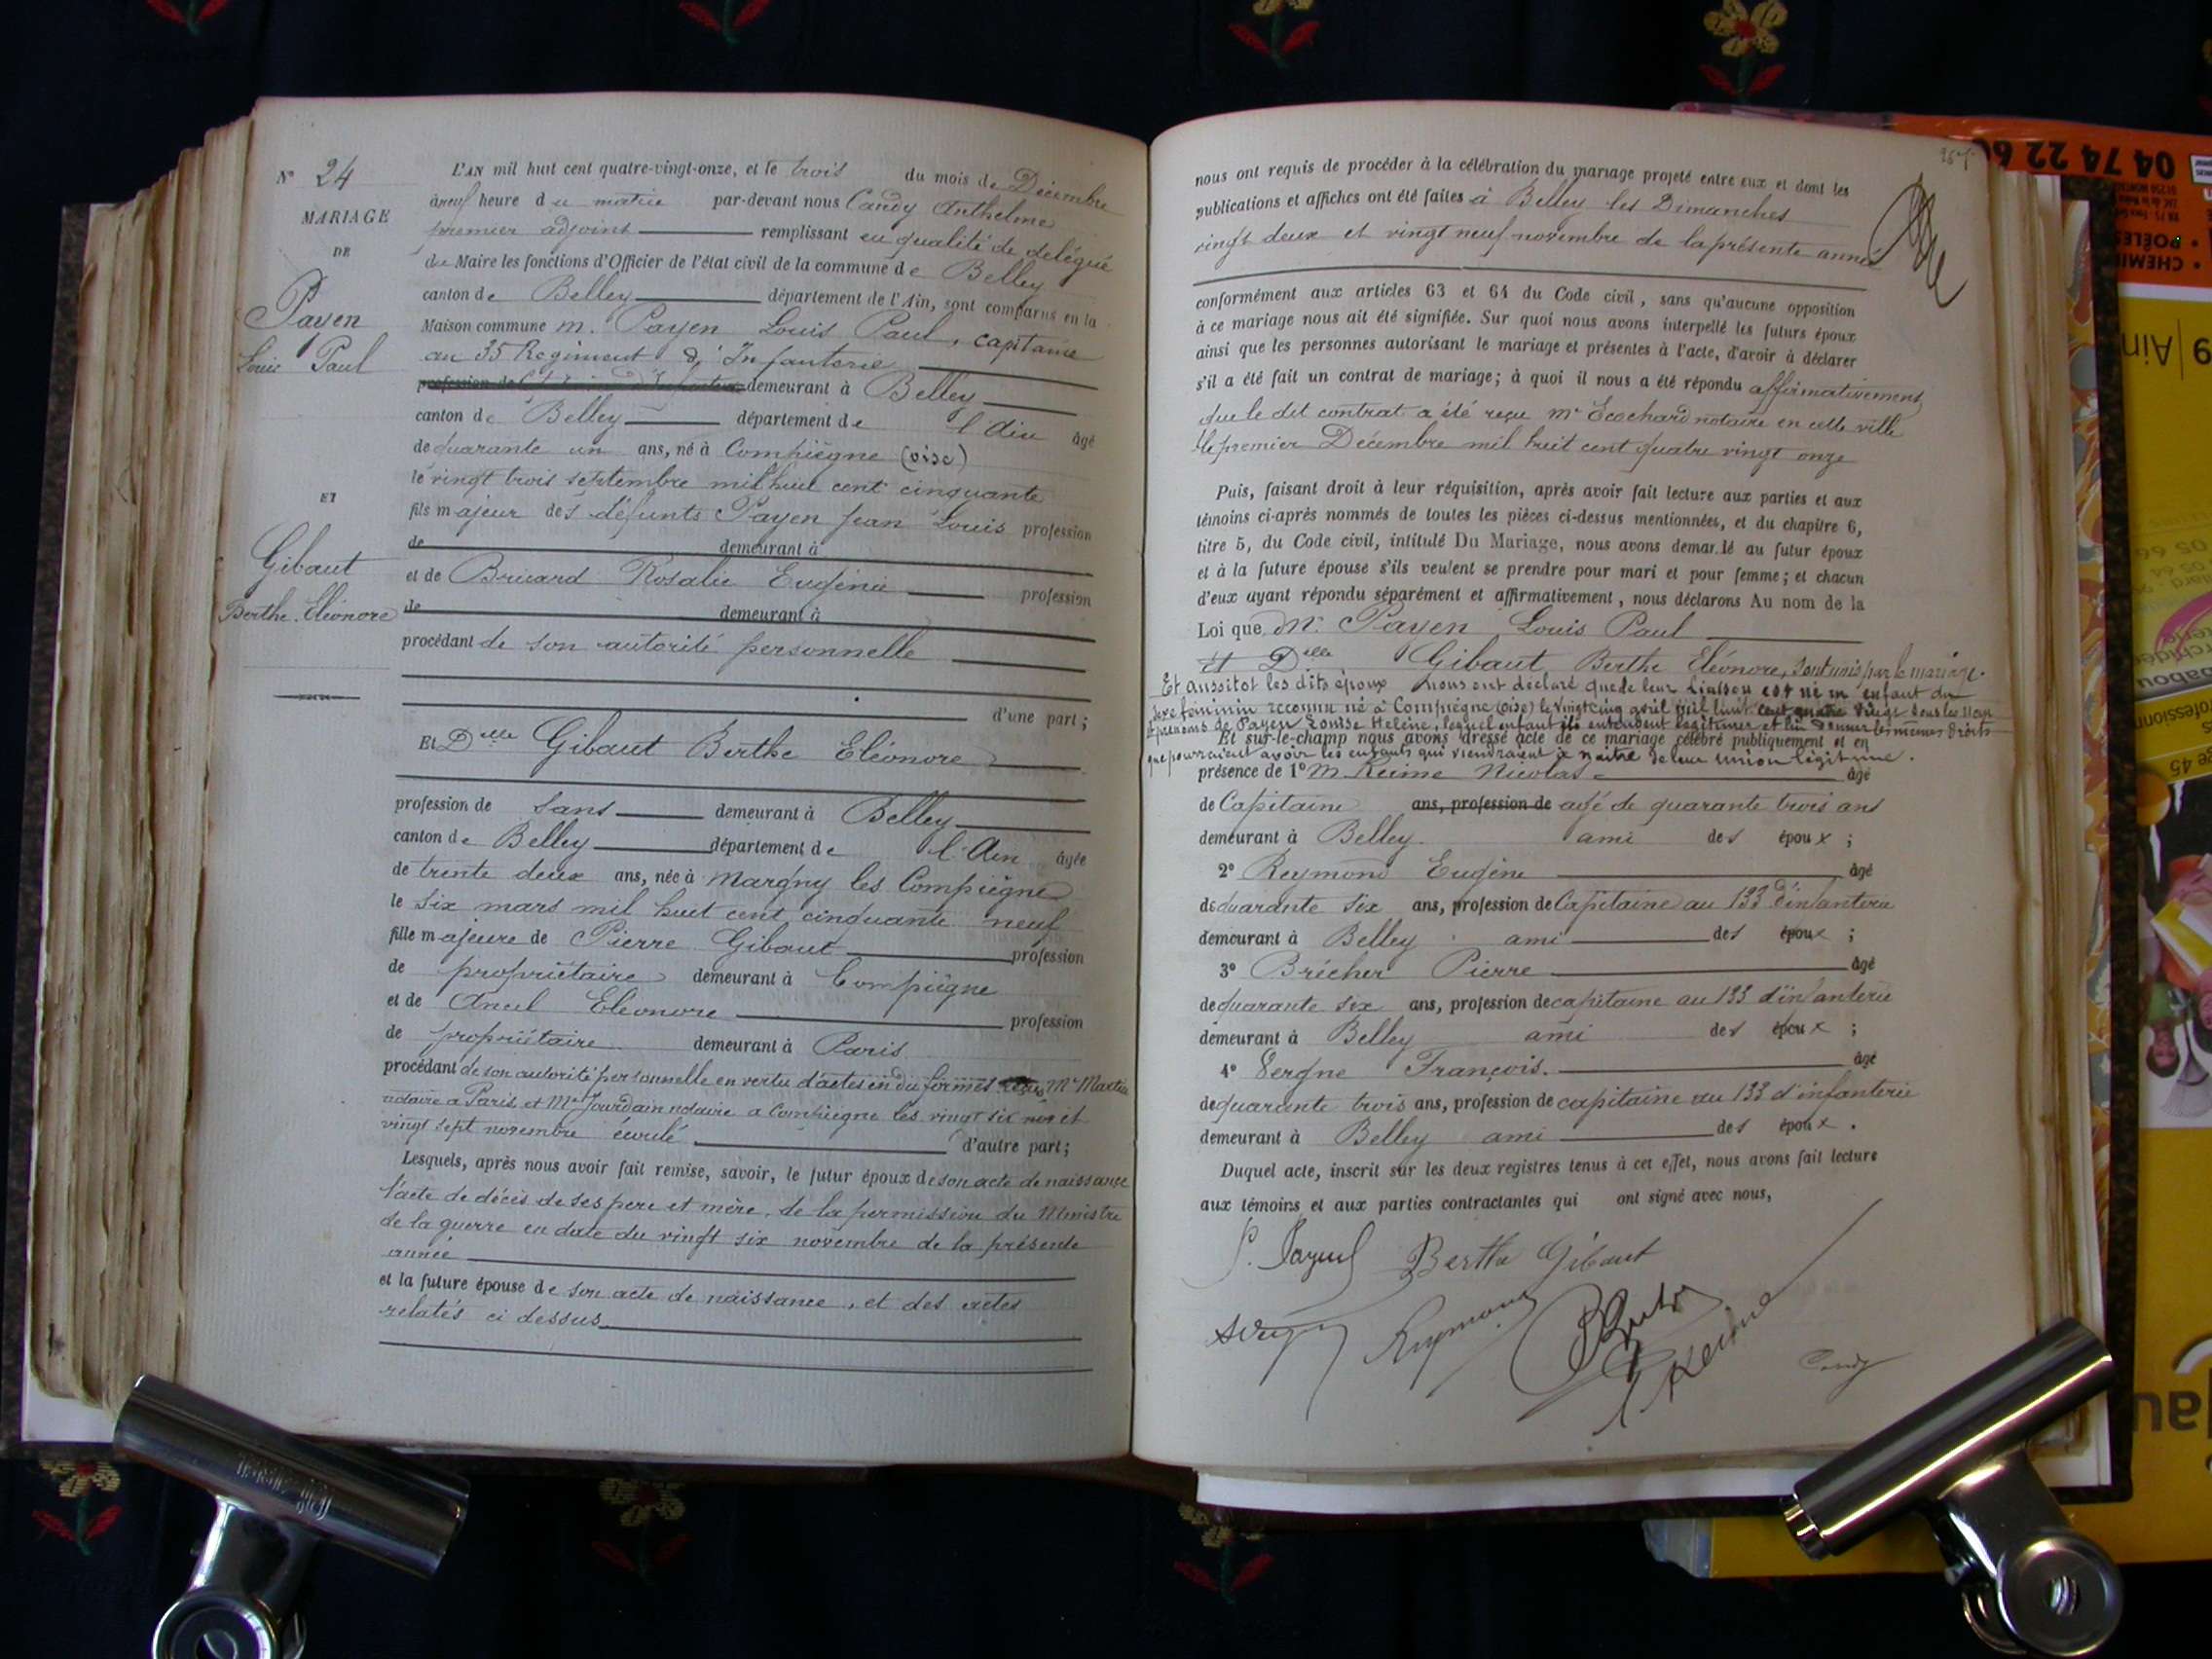 N° 24
MARIAGE
DE
Payen
Louis Paul
ET
Gibaut
Berthe Eléonore
L'AN mil huit cent quatre-vingt-onze, et le trois du mois de Décembre
à neuf heure du matin par-devant nous Candy Anthelme
premier adjoint remplissant en qualité de délégué
du Maire les fonctions d'Officier de l'état civil de la commune de Belley
canton de Belley département de l'Ain, sont comparus en la
Maison commune M. Payen Louis Paul, capitaine
au 35 Regiment d'Infanterie
profession de demeurant à Belley
canton de Belley département de l'Ain âgé
de quarante un ans, né à Compiègne (oise)
le vingt trois septembre mil huit cent cinquante
fils majeur des défunts Payen Jean Louis profession
de demeurant à
et de Bricard Rosalie Eugénie profession
de demeurant à
procédant de son autorité personnelle
d'une part;
Et Delle Gibaut Berthe Eléonore
profession de Sans demeurant à Belley
canton de Belley département de l'Ain âgée
de trente deux ans, née à Margny les Compiègne
le six mars mil huit cent cinquante neuf
fille majeure de Pierre Gibaut profession
de propriétaire demeurant à Compiègne
et de Eléonore profession
de propriétaire demeurant à Paris
procédant de son autorité personnelle en vertu d'actes en du formes reçus Me Martin
notaire a Paris et Me Jourdain notaire a Compiegne les vingt six et
vingt sept novembre écoulé d'autre part;
Lesquels, après nous avoir fait remise, savoir, le futur époux de son acte de naissance
l'acte de décès de ses pere et mère, de la permission du Ministre
de la guerre en date du vingt six novembre de la présente
année
et la future épouse de son acte de naissance, et des actes
relatés ci dessus
nous ont requis de procéder à la célébration du mariage projeté entre eux et dont les
publications et affiches ont été faites à Belley les Dimanches
vingt deux et vingt neuf novembre de la présente année
conformément aux articles 63 et 64 du Code civil, sans qu'aucune opposition
à ce mariage nous ait été signifiée. Sur quoi nous avons interpellé les futurs époux
ainsi que les personnes autorisant le mariage et présentes à l'acte, d'avoir à déclarer
s'il a été fait un contrat de mariage; à quoi il nous a été répondu affirmativement
que le dit contrat a été reçu Mr Ecochard notaire en cette ville
le premier Décembre mil huit cent quatre vingt onze
Puis, faisant droit à leur réquisition, après avoir fait lecture aux parties et aux
témoins ci-après nommés de toutes les pièces ci-dessus mentionnées, et du chapitre 6,
titre 5, du Code civil, intitulé Du Mariage, nous avons demandé au futur époux
et à la future épouse s'ils veulent se prendre pour mari et pour femme; et chacun
d'eux ayant répondu séparément et affirmativement, nous déclarons Au nom de la
Loi que Mr. Payen Louis Paul
Et Delle Gibaut Berthe Eléonore, sont unis par le mariage.
Et aussitot les dits époux nous ont déclaré que de leur liaison est né un enfant du
sexe féminin reconnu né à Compiègne (oise) le vingt cinq avril mil huit cent quatre vingt sous les nom
et prénoms de Payen Louise Helene, lequel enfant ils entendent légitimer et lui donner les mêmes droits
Et sur-le-champ nous avons dressé acte de ce mariage célébré publiquement et en
que pourraient avoir les enfants qui viendraient à naitre de leur union légitime.
présence de 1° M. Reime Nicolas âgé
de Capitaine ans, profession de agé de quarante trois ans
demeurant à Belley ami des époux;
2° Reymond Eugène âgé
de quarante six ans, profession de Capitaine au 133 d'infanterie
demeurant à Belley ami des époux;
3° Brécher Pierre âgé
de quarante six ans, profession de capitaine au 133 d'infanterie
demeurant à Belley ami des époux;
4° Vergne François. âgé
de quarante trois ans, profession de capitaine au 133 d'infanterie
demeurant à Belley ami des époux.
Duquel acte, inscrit sur les deux registres tenus à cet effet, nous avons fait lecture
aux témoins et aux parties contractantes qui ont signé avec nous,
Berthe Gibaut
Reymond
Reime
Candy
04 74 22 6
POÊLES
CHEMI
Ain